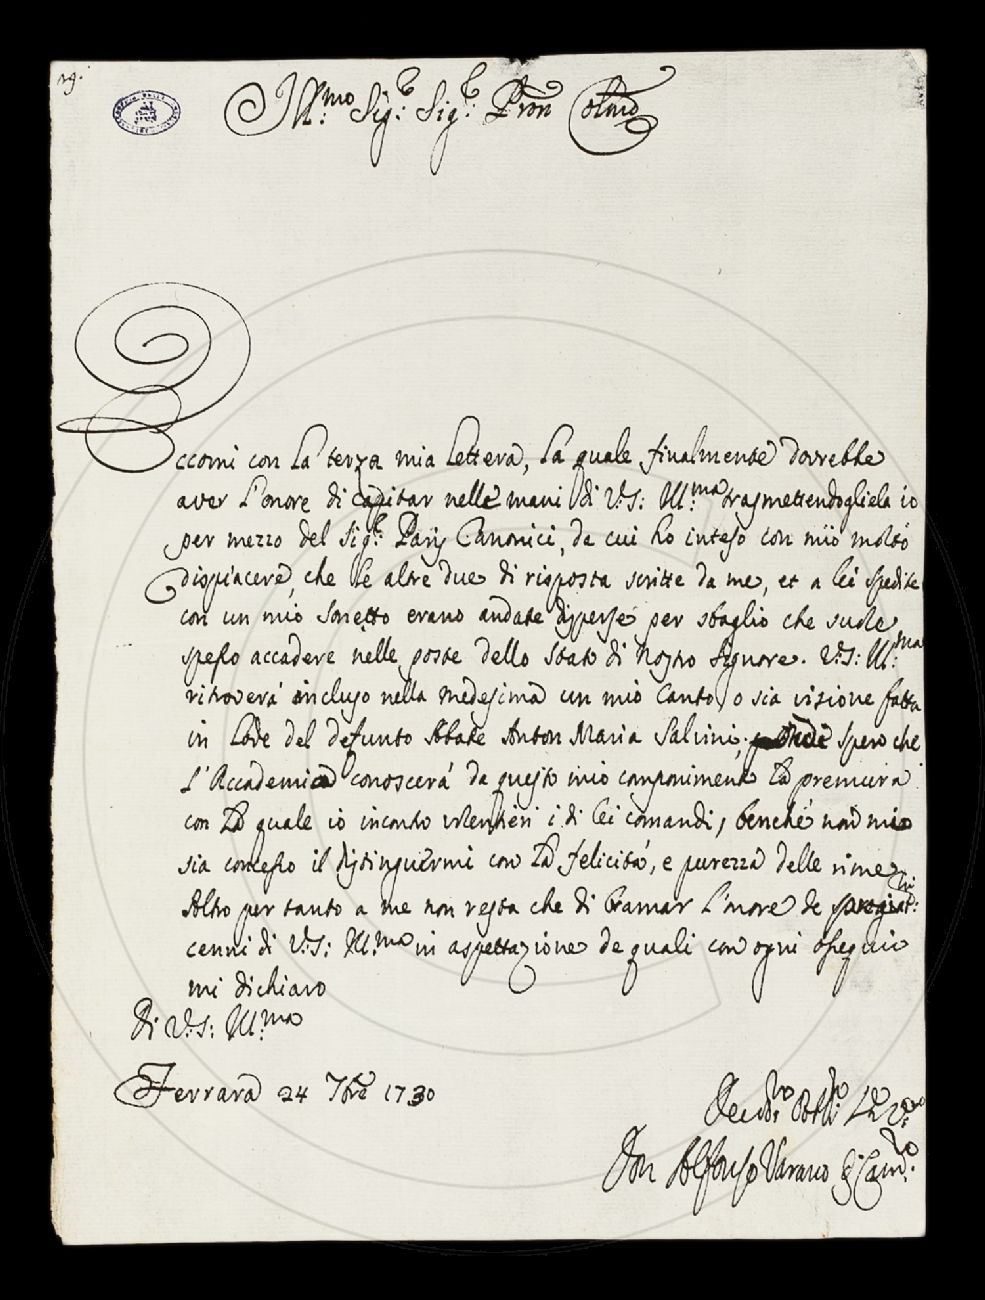 29.
Ill.mo Sig.e Sig.e Pron Colmo
Eccomi con la terza mia Lettera, la quale finalmente dovrebbe
aver l'onore di capitar nelle mani di V.S: Ill.ma trasmettendogliela io
per mezzo del Sig.e Paris Canonici, da cui ho inteso con mio molto
dispiacere, che le altre due di risposta scritte da me, et a lei spedite
con un mio Sonetto erano andate disperse per sbaglio che suole
spesso accadere nelle poste dello Stato di Nostro Signore. V.S: Ill.ma
ritroverà incluso nella medesima un mio Canto, o sia visione fatta
in Lode del defunto Abbate Anton Maria Salvini, onde spero che
L'Accademia conoscerà da questo mio componimento la premura
con la quale io incontro volentieri i di lei comandi, benché non mi
sia concesso il distinguermi con la felicità, e purezza delle rime
Altro per tanto a me non resta che di bramar l'onore de
cenni di V.S: Ill.ma in aspettazione de quali con ogni ossequio
mi dichiaro
Di V.S: Ill.ma
Ferrara 24 7bre 1730
Don Alfonso Varano di Cam.no